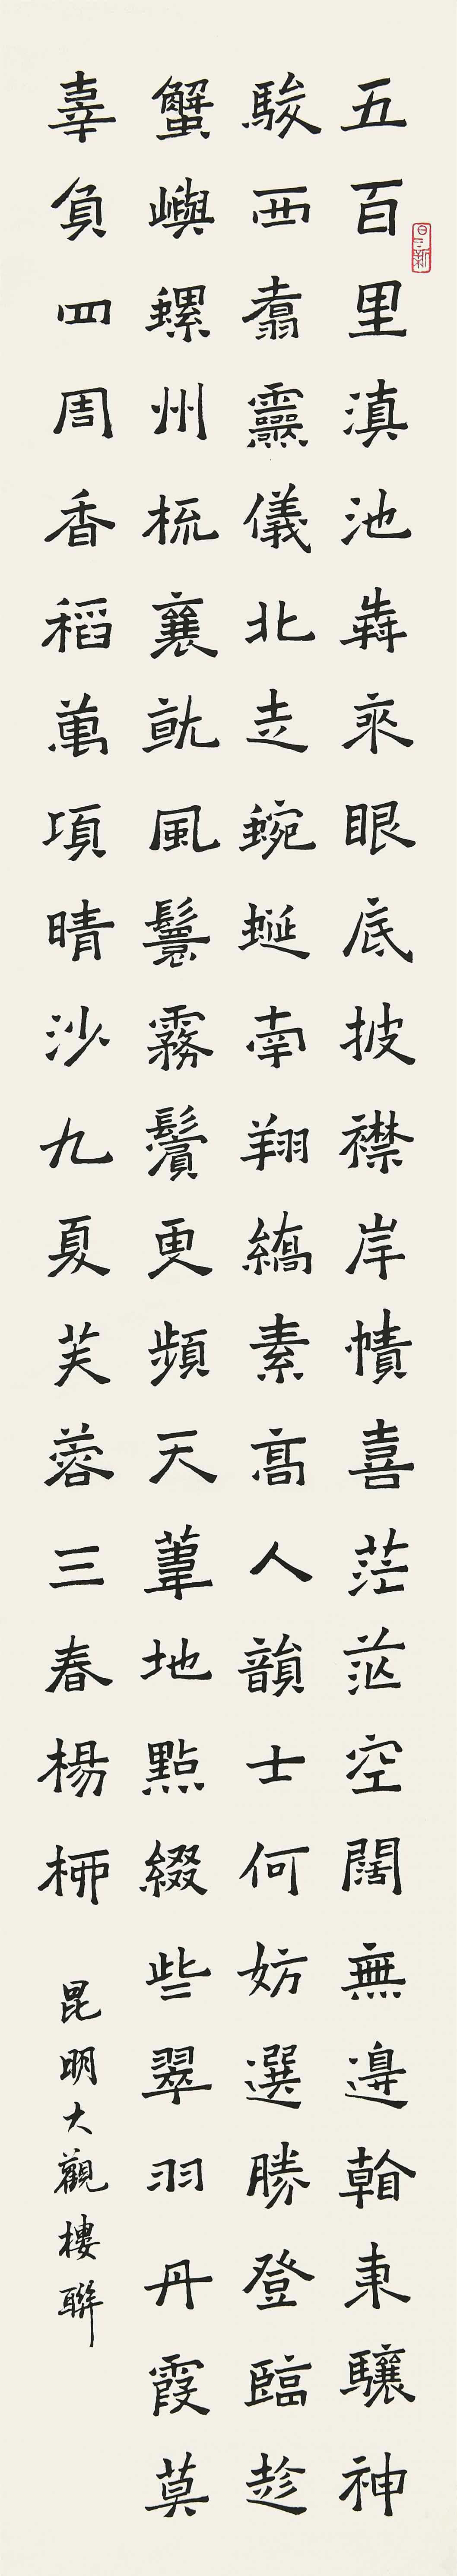 五百里滇池犇來眼底披襟岸幘喜茫茫空闊無邊韓東驤神
駿西翥靈儀北走蜿蜒南翔縞素高人韻士何妨選勝登臨趁
蟹嶼螺州梳裹就風鬟霧鬢更蘋天葦地點綴些翠羽丹霞莫
辜負四周香稻萬頃晴沙九夏芙蓉三春楊柳
昆明大觀樓聯
日日新